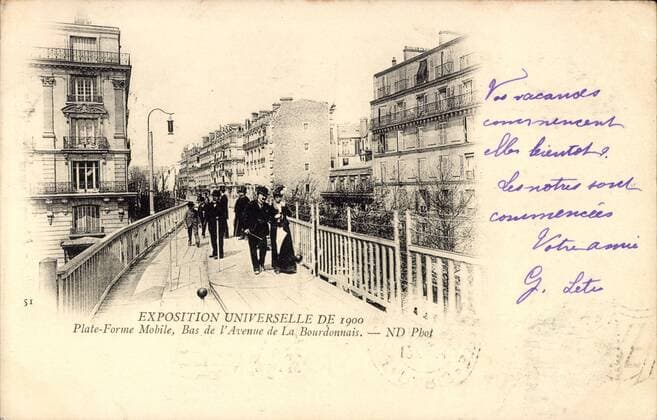 Vos vacances
commencent
elles bientôt?
Les notres sont
commencées
Votre amie
G.
51
EXPOSITION UNIVERSELLE DE 1900
Plate-Forme Mobile, Bas de l'Avenue de La Bourdonnais. — ND Phot